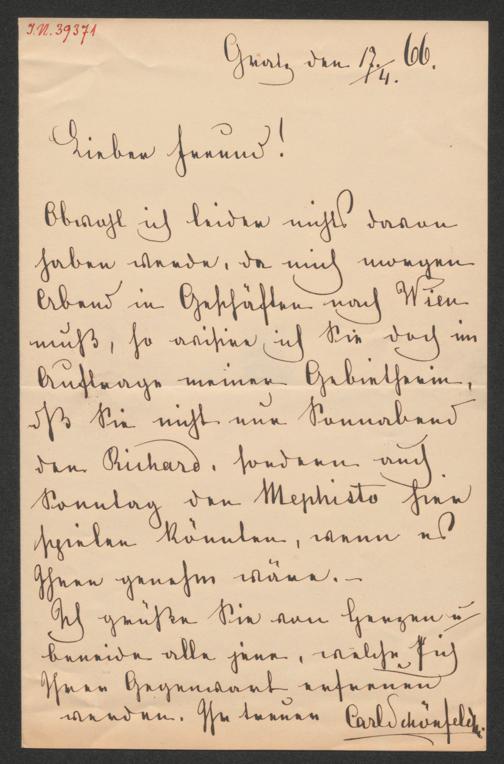 I.N. 39371
Gratz den 12/4. 66.
Lieber Freund!
Obwohl ich leider nichts davon
haben werde, da mich morgen
Abend in Geschäften nach Wien
muß, so avisire ich Sie doch im
Auftrage meiner Gebietherin,
dß Sie nicht nur Sonnabend
den Richard, sondern auch
Sonntag den Mephisto hier
spielen könnten, wenn es
Ihnen genehm wäre. –
Ich grüße Sie von Herzen u
beneide alle jene, welche sich
Ihrer Gegenwart erfreuen
werden. Ihr treuer Carl Schönfeld